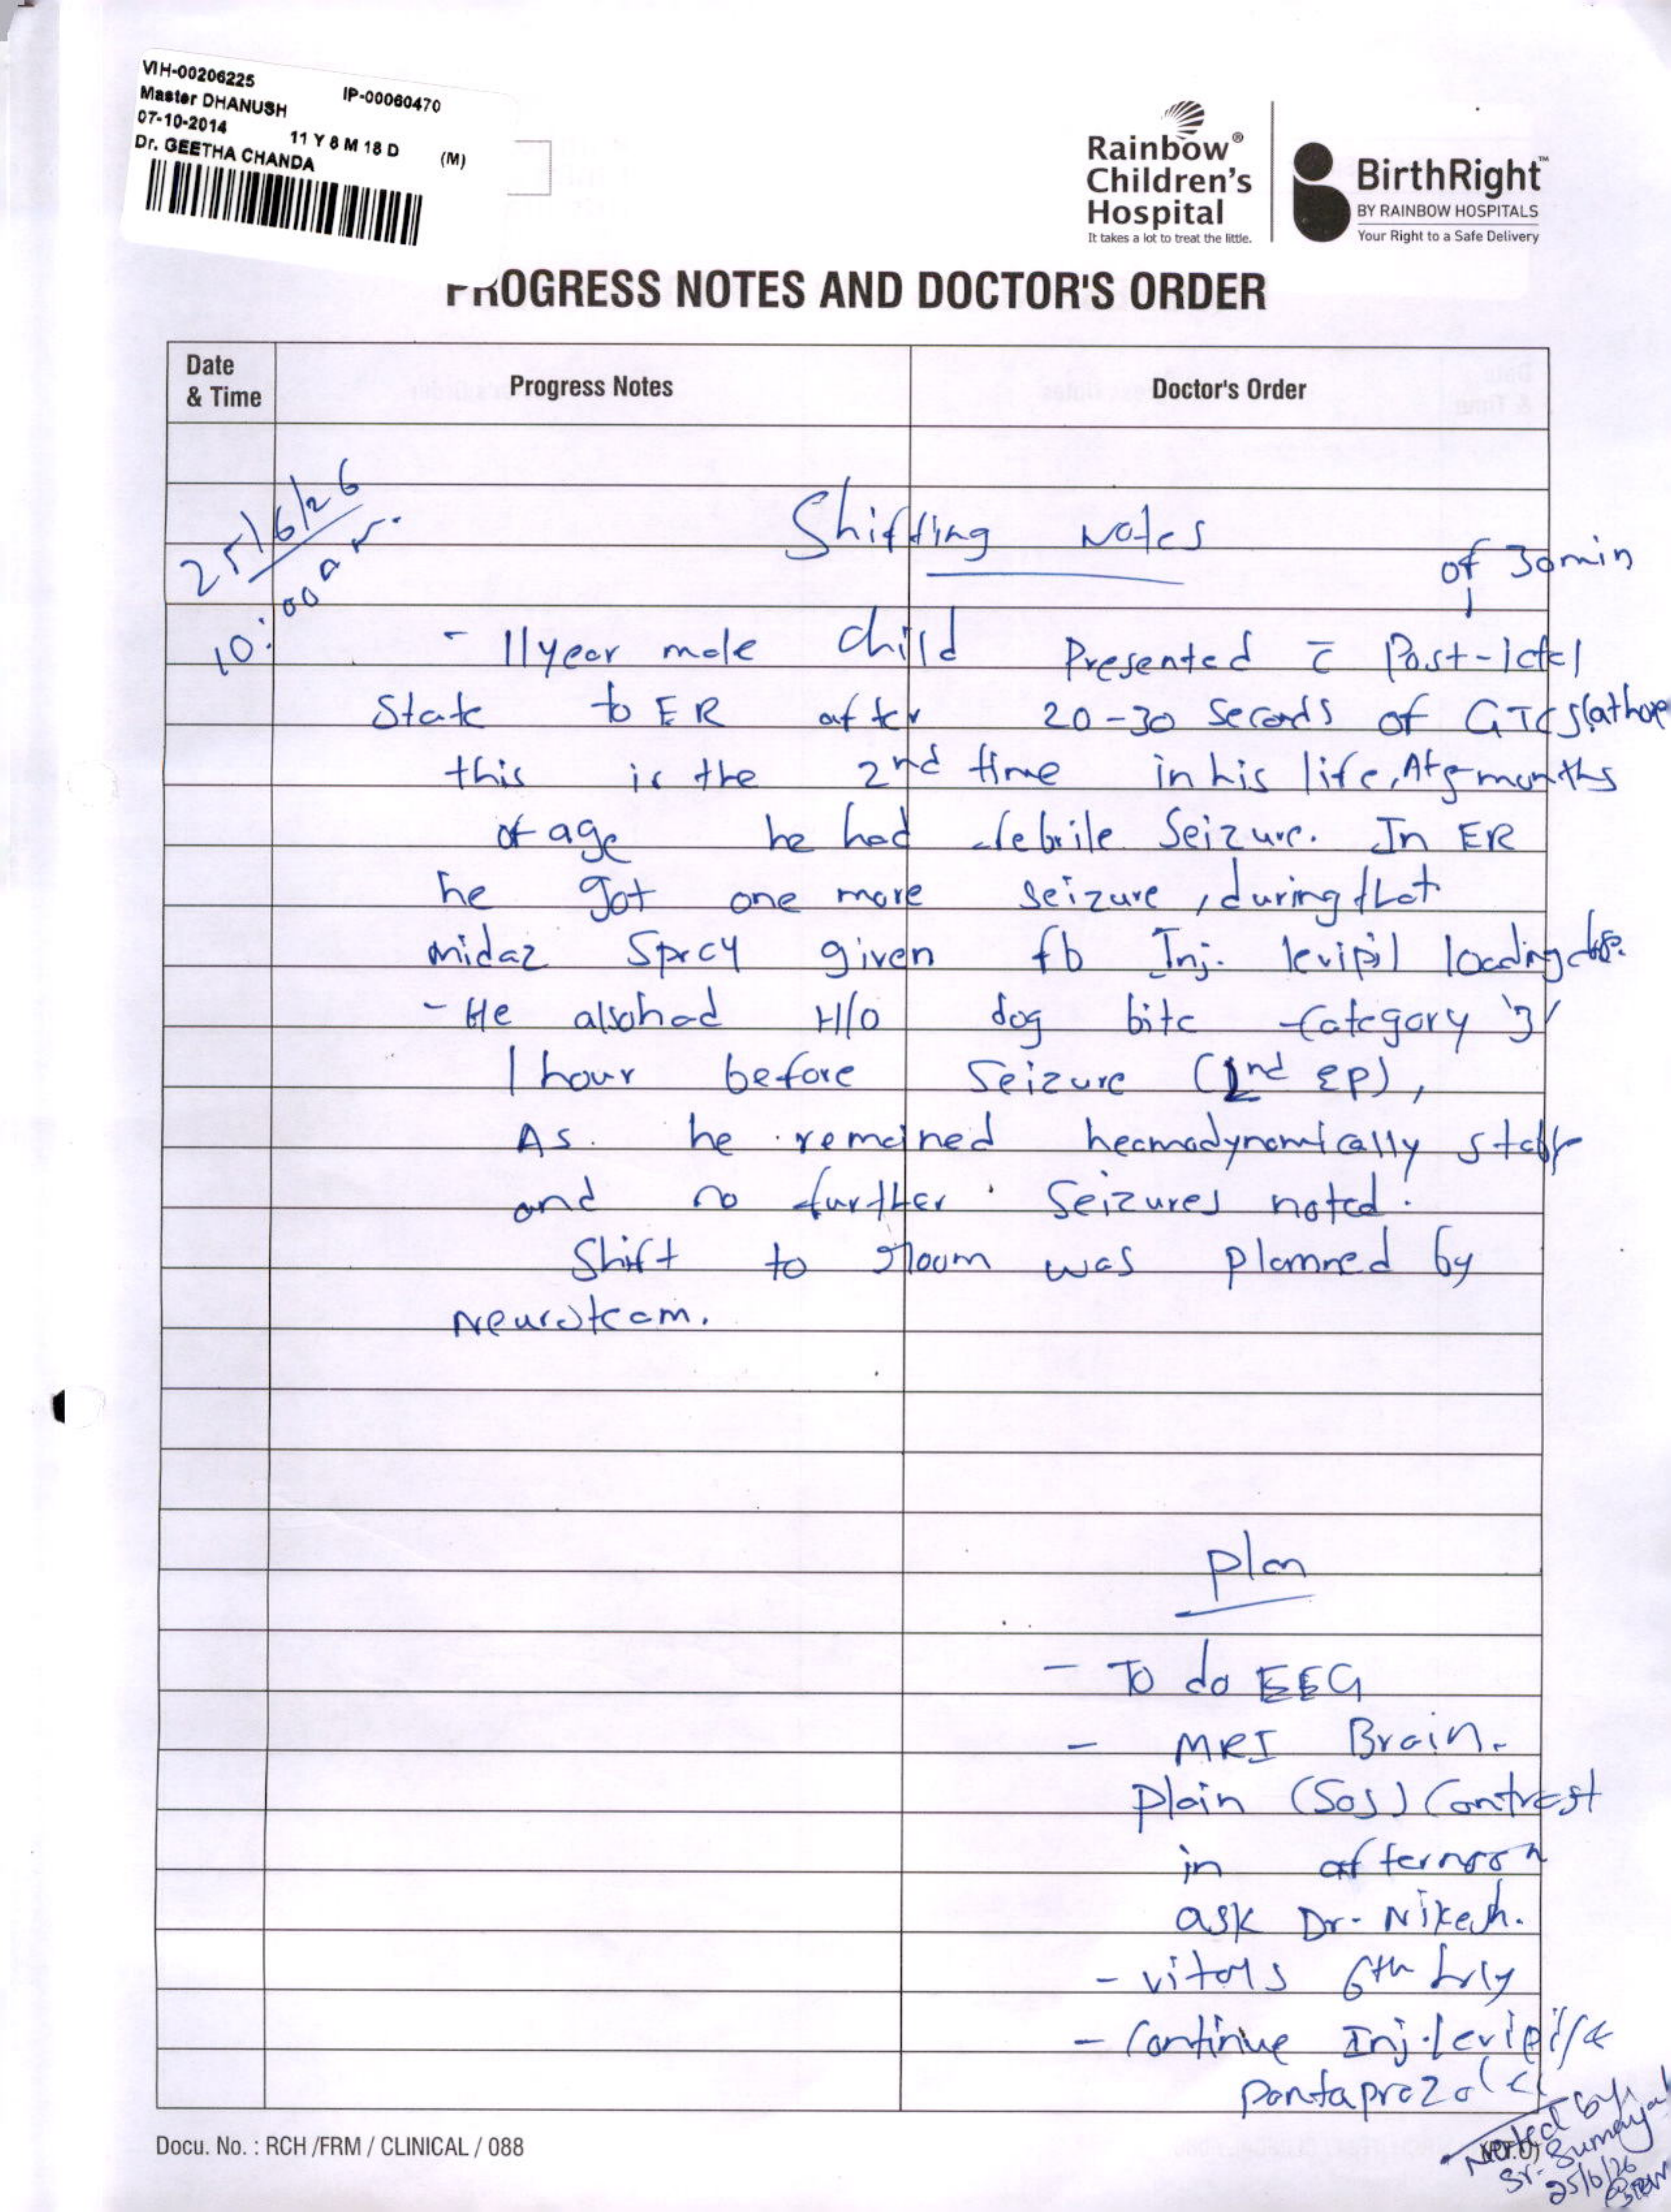 VIH-00206225 IP-00060470
Master DHANUSH
07-10-2014 11 Y 8 M 18 D (M)
Dr. GEETHA CHANDA
Rainbow® Children's Hospital
It takes a lot to treat the little.
BirthRight™
BY RAINBOW HOSPITALS
Your Right to a Safe Delivery
PROGRESS NOTES AND DOCTOR'S ORDER
Date & Time Progress Notes Doctor's Order
25/6/26
10:00 am
Shifting Notes
of 30min
- 11year male child Presented c̄ Post-ictal
State to ER after 20-30 Seconds of GTCS (at home
this is the 2nd time in his life, At months
of age he had febrile Seizure. In ER
he got one more seizure, during that
midaz Spray given fb Inj. levipil loading dose.
- He also had H/o dog bite Category '3'
1 hour before Seizure (2nd ep),
As he remained heamodynamically stable
and no further Seizures noted.
Shift to room was planned by
Neuroteam.
Plan
- To do EEG
- MRI Brain.
Plain (SOS) Contrast
in afternoon
ask Dr. Nikesh.
- vitals 6th hrly
- Continue Inj. levipil &
pantaprazole
Docu. No. : RCH /FRM / CLINICAL / 088
Noted by
Sr. Sumaya
25/6/26